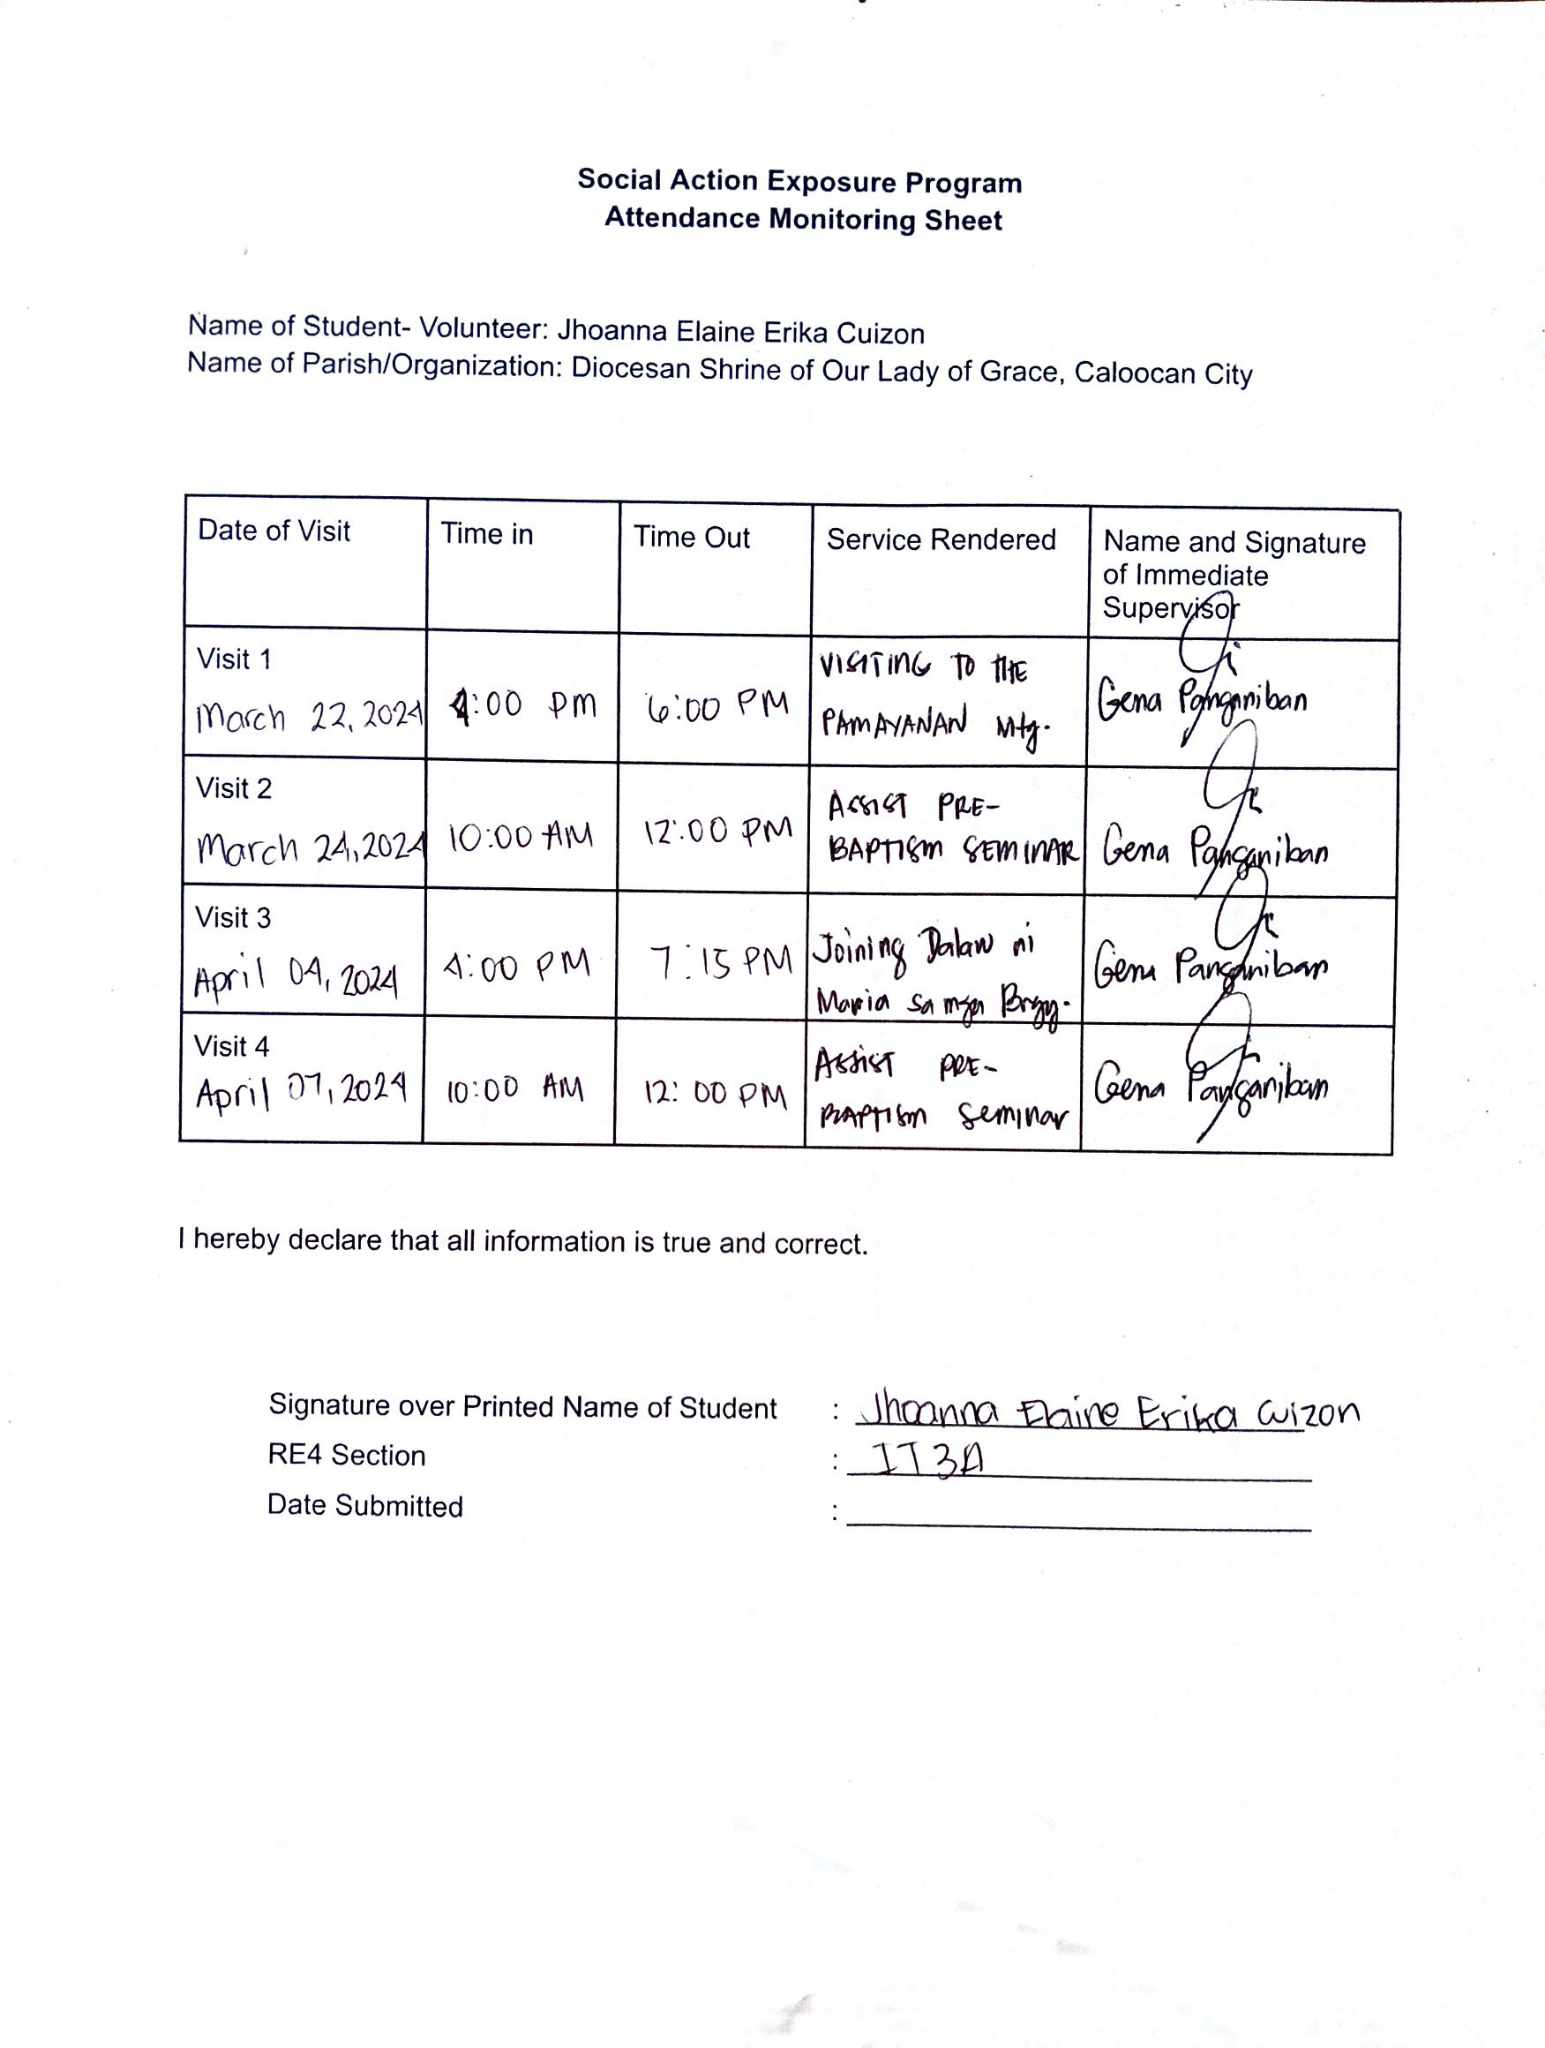 Social Action Exposure Program
Attendance Monitoring Sheet
Name of Student- Volunteer: Jhoanna Elaine Erika Cuizon
Name of Parish/Organization: Diocesan Shrine of Our Lady of Grace, Caloocan City
Date of Visit
Time in
Time Out
Service Rendered
Name and Signature
of Immediate
Supervisor
Visit 1
March 22, 2024
4:00 pm
6:00 PM
VISITING TO THE
PAMAYANAN Mtg.
Gena Panganiban
Visit 2
March 24, 2024
10:00 AM
12:00 PM
ASSIST PRE-
BAPTISM SEMINAR
Gena Panganiban
Visit 3
April 04, 2024
4:00 PM
7:15 PM
Joining Dalaw ni
Maria sa mga Brgy.
Gena Panganiban
Visit 4
April 07, 2024
10:00 AM
12:00 PM
ASSIST PRE-
BAPTISM Seminar
Gena Panganiban
I hereby declare that all information is true and correct.
Signature over Printed Name of Student : Jhoanna Elaine Erika Cuizon
RE4 Section : IT3A
Date Submitted :